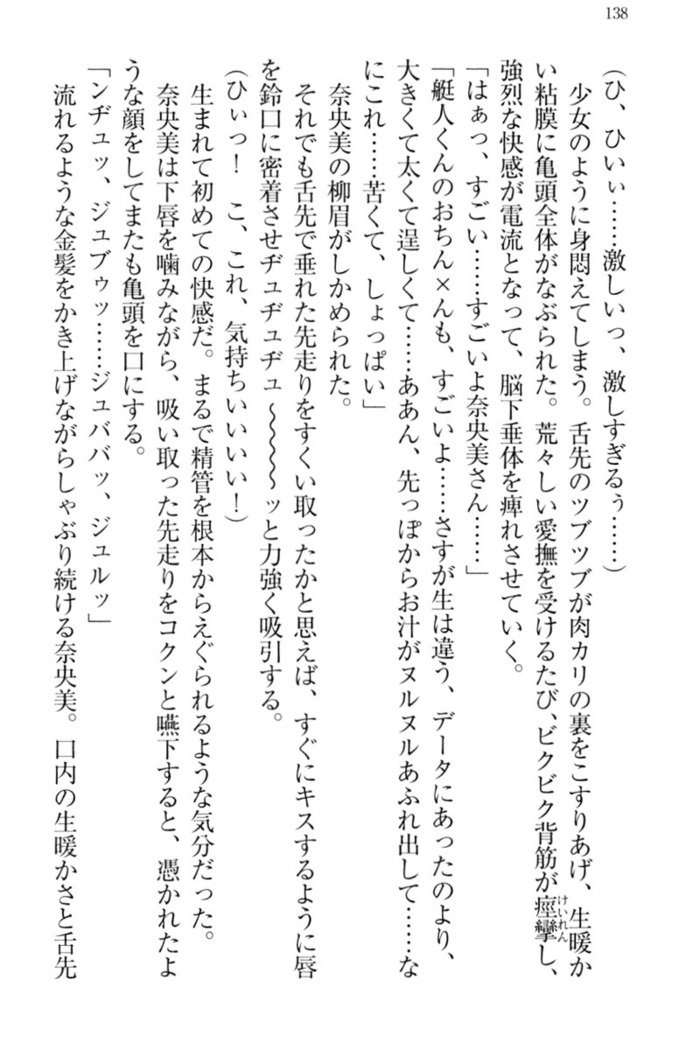 138
(ひ、ひいぃ……激しいっ、激しすぎるぅ……)
少女のように身悶えてしまう。舌先のツブツブが肉カリの裏をこすりあげ、生暖か
い粘膜に亀頭全体がなぶられた。荒々しい愛撫を受けるたび、ビクビク背筋が痙攣し、
けいれん
強烈な快感が電流となって、脳下垂体を痺れさせていく。
「はぁっ、すごい……すごいよ奈央美さん……」
「艇人くんのおちん×んも、すごいよ……さすが生は違う、データにあったのより、
大きくて太くて逞しくて……ああん、先っぽからお汁がヌルヌルあふれ出して……な
にこれ……苦くて、しょっぱい」
奈央美の柳眉がしかめられた。
それでも舌先で垂れた先走りをすくい取ったかと思えば、すぐにキスするように唇
を鈴口に密着させヂュヂュヂュ〜〜〜〜ッと力強く吸引する。
(ひぃっ!　こ、これ、気持ちいいいい!)
生まれて初めての快感だ。まるで精管を根本からえぐられるような気分だった。
奈央美は下唇を噛みながら、吸い取った先走りをコクンと嚥下すると、憑かれたよ
うな顔をしてまたも亀頭を口にする。
「ンヂュッ、ジュブゥッ……ジュババッ、ジュルッ」
流れるような金髪をかき上げながらしゃぶり続ける奈央美。口内の生暖かさと舌先